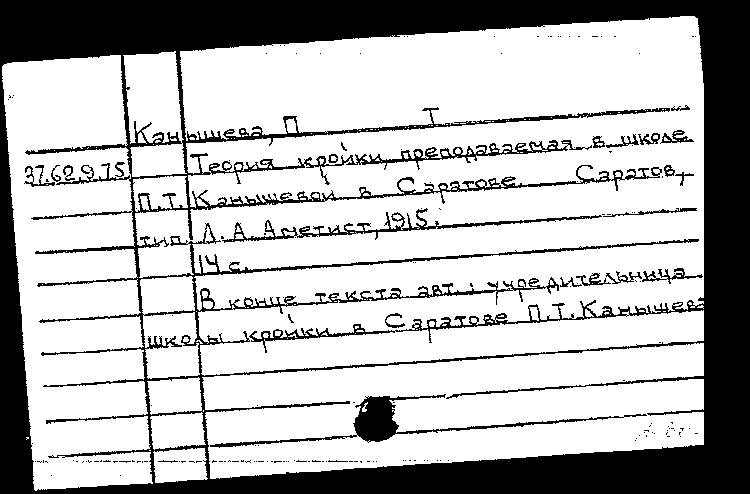 Канышева, П Т
37.62.9.75 Теория кройки, преподаваемая в школе
П.Т. Канышевой в Саратове. Саратов,
тип. Л. А. Аметист, 1915.
14 с.
В конце текста авт.: учредительница
школы кройки в Саратове П.Т. Канышева